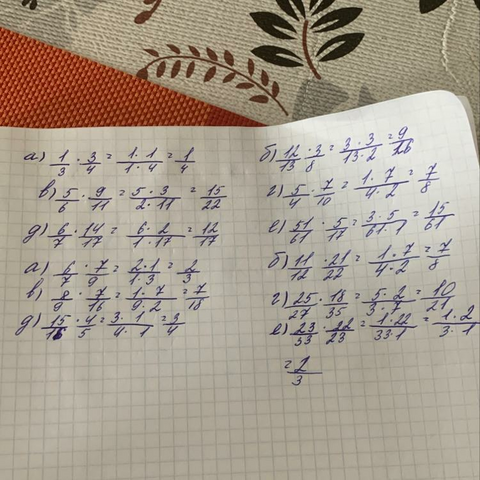 а) 1/3 · 3/4 = 1·1/1·4 = 1/4
в) 5/6 · 9/11 = 5·3/2·11 = 15/22
д) 6/7 · 14/17 = 6·2/1·17 = 12/17
а) 6/7 · 7/9 = 2·1/1·3 = 2/3
в) 8/9 · 7/16 = 1·7/9·2 = 7/18
д) 15/16 · 4/5 = 3·1/4·1 = 3/4
б) 12/13 · 3/8 = 3·3/13·2 = 9/26
г) 5/4 · 7/10 = 1·7/4·2 = 7/8
е) 51/61 · 5/17 = 3·5/61·1 = 15/61
б) 11/12 · 21/22 = 1·7/4·2 = 7/8
г) 25/27 · 18/35 = 5·2/3·7 = 10/21
е) 23/33 · 22/23 = 1·22/33·1 = 1·2/3·1
= 2/3